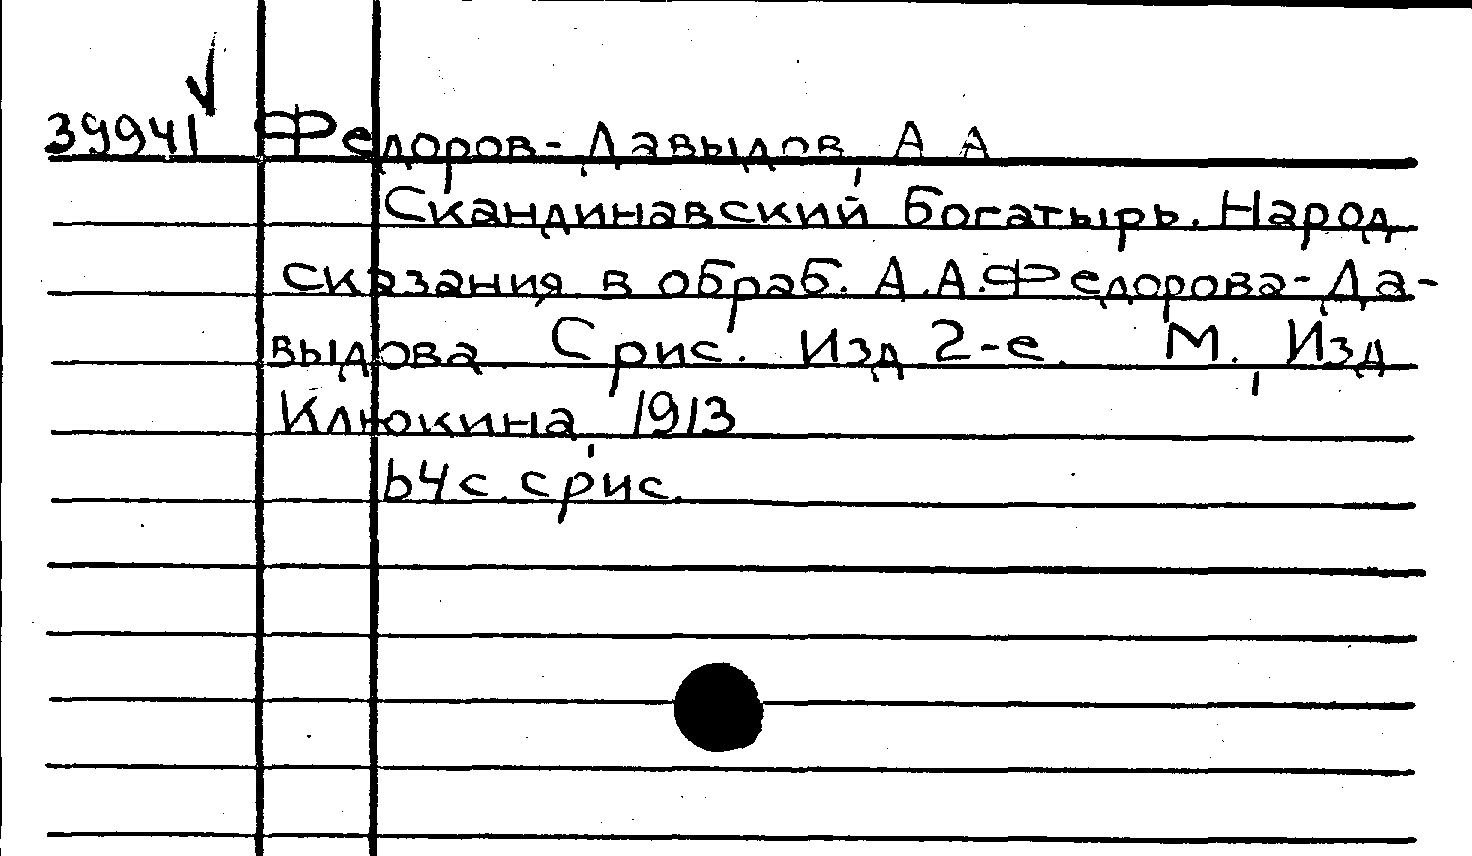 39941 Федоров-Давыдов, А А
Скандинавский богатырь. Народ
сказания в обраб. А.А.Федорова-Да-
выдова С рис. Изд 2-е. М., Изд
Клюкина, 1913
64с. с рис.